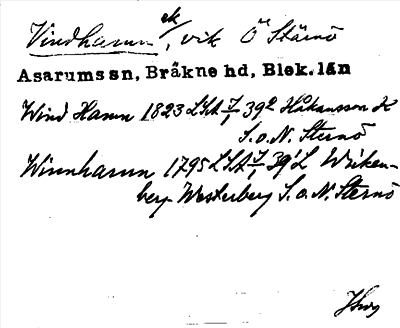 Vindhamn ek/, vik Ö Stärnö
Asarums sn, Bräkne hd, Blek. län
Wind Hamn 1823 LSA 7/1 39² Håkansson K
S. o. N. Sternö
Winnhamn 1795 LSA 7/1 39¹ L Wirken-
berg Westerberg S. o. N. Sternö